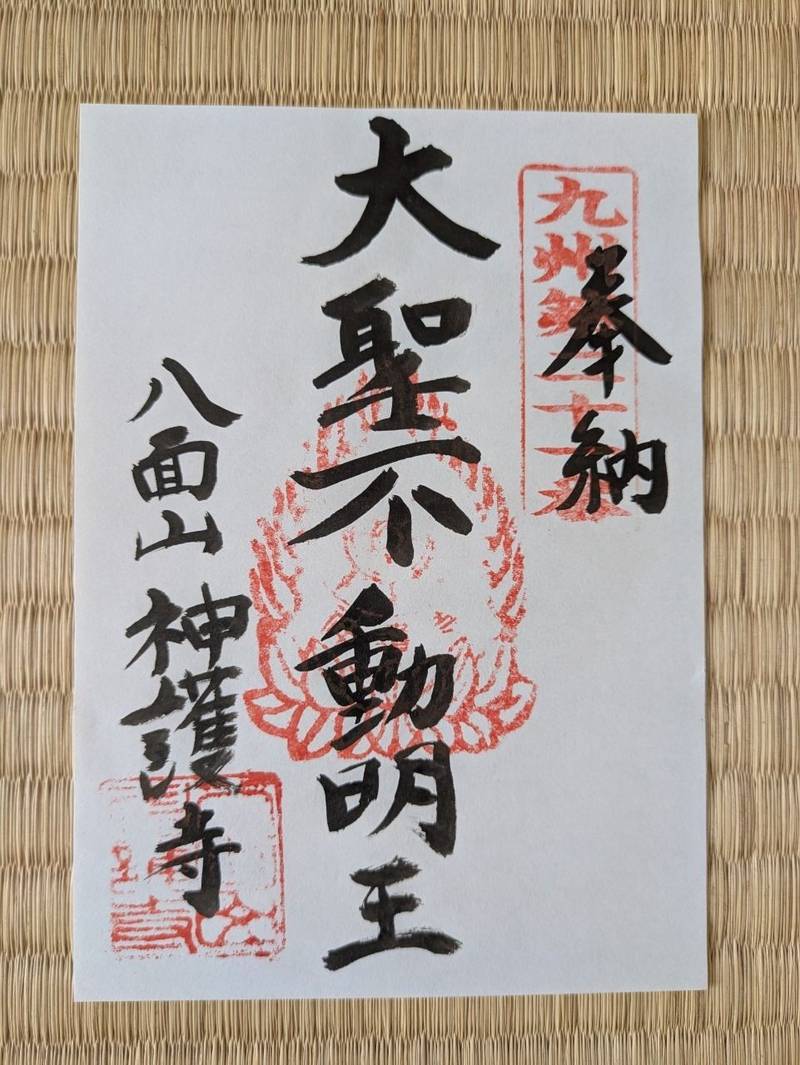 奉納
九州
大聖不動明王
八面山 神護寺